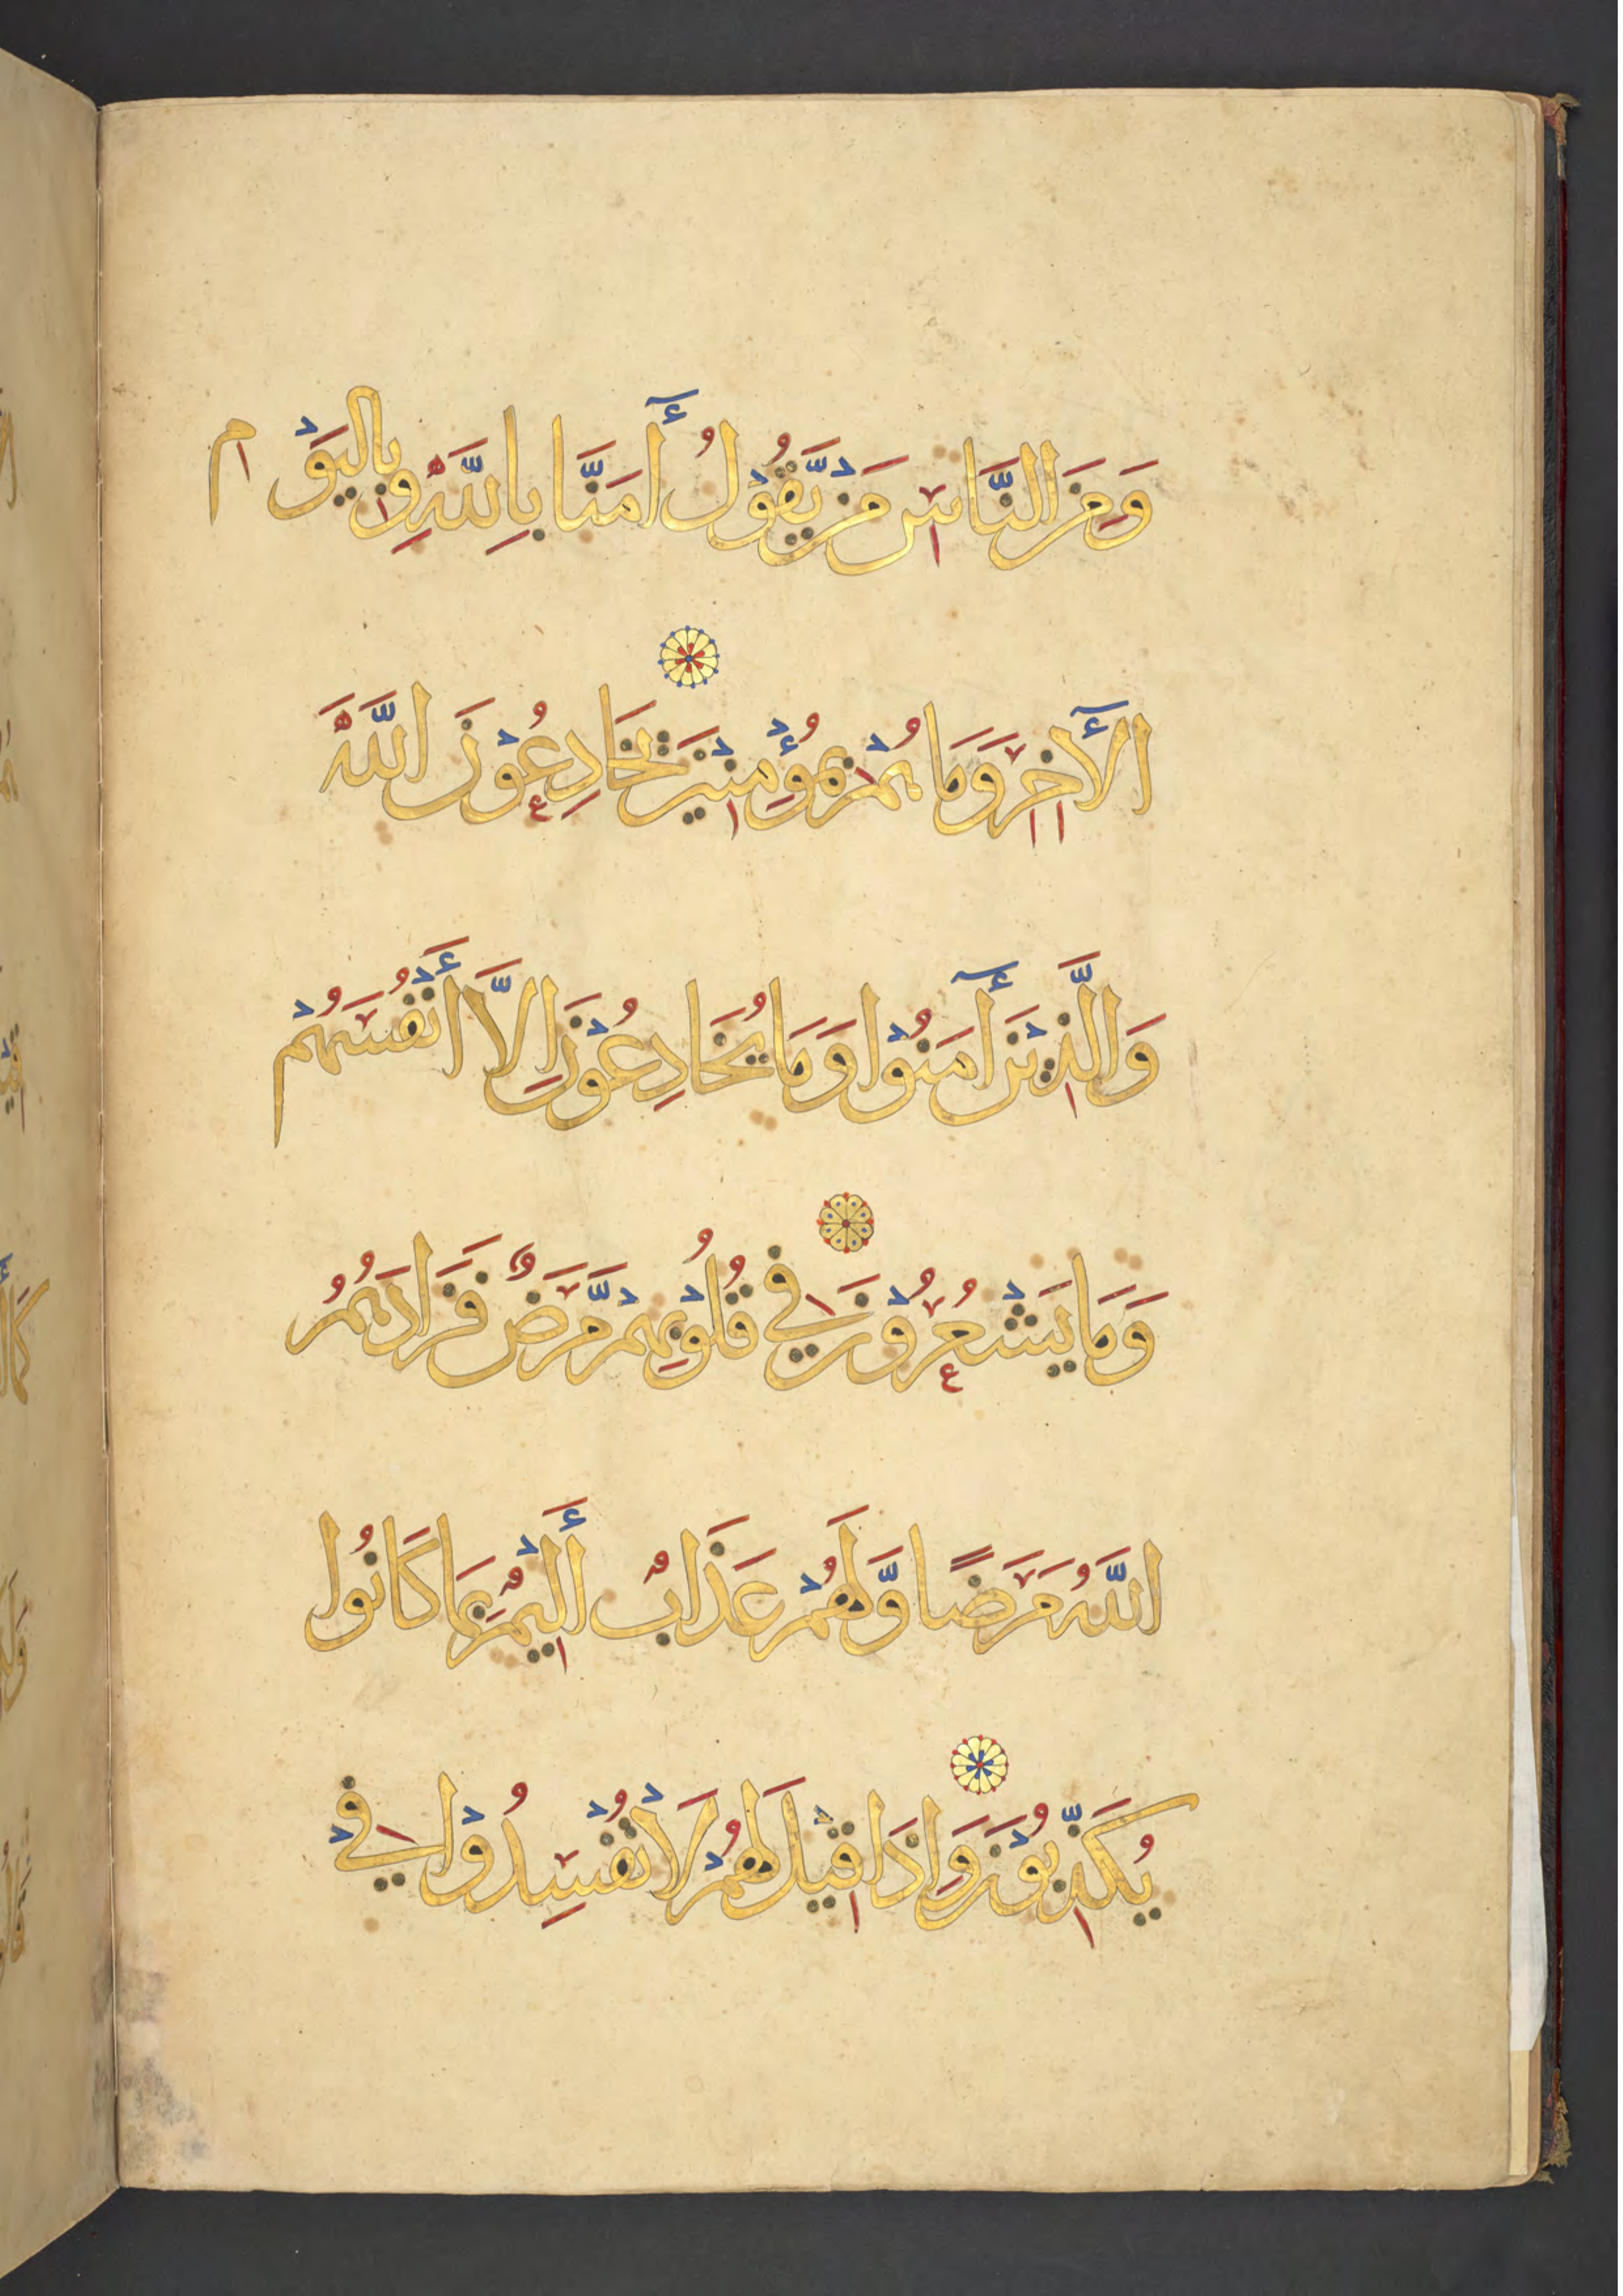 وَمِنَ النَّاسِ مَنْ يَّقُوْلُ أٰمَنَّا بِاللَّهِ وَبِالْيَوْمِ
الْأٰخِرِ وَمَا هُمْ بِمُؤْمِنِيْنَ يُخَادِعُوْنَ اللَّهَ
وَالَّذِيْنَ أٰمَنُوْا وَمَا يُخَادِعُوْنَ اِلَّا أَنْفُسَهُمْ
وَمَا يَشْعُرُوْنَ فِي قُلُوْبِهِمْ مَّرَضٌ فَزَادَهُمُ
اللَّهُ مَرَضًا وَّلَهُمْ عَذَابٌ أَلِيْمٌ بِمَا كَانُوا
يُكَذِّبُوْنَ وَاِذَا قِيْلَ لَهُمْ لَا تُفْسِدُوْا فِي